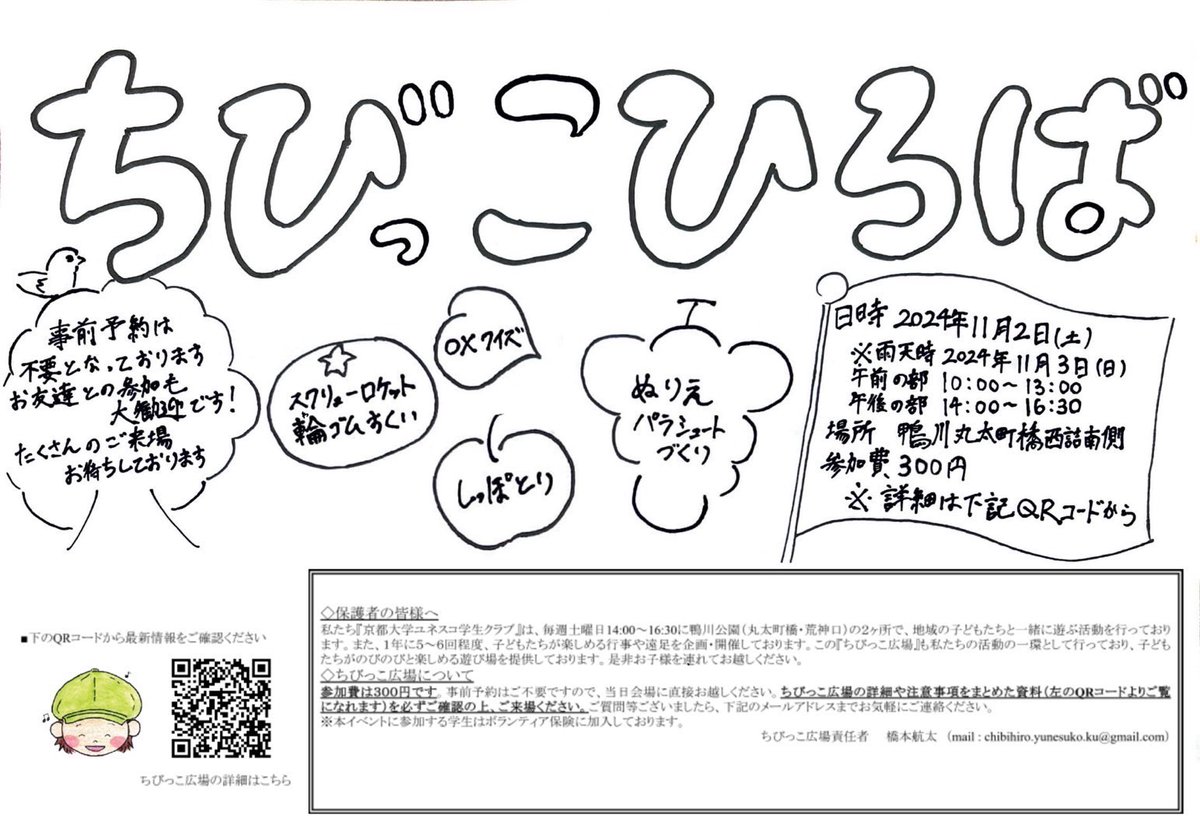 ちびっこひろば
事前予約は
不要となっております
お友達との参加も
大歓迎です!
たくさんのご来場
お待ちしております
スクリューロケット
輪ゴムすくい
OXクイズ
しっぽとり
ぬりえ
パラシュート
づくり
日時 2024年11月2日(土)
※雨天時 2024年11月3日(日)
午前の部 10:00〜13:00
午後の部 14:00〜16:30
場所 鴨川丸太町橋西詰南側
参加費 300円
※ 詳細は下記QRコードから
■下のQRコードから最新情報をご確認ください
ちびっこ広場の詳細はこちら
◇保護者の皆様へ
私たち『京都大学ユネスコ学生クラブ』は、毎週土曜日14:00〜16:30に鴨川公園(丸太町橋・荒神口)の2ヶ所で、地域の子どもたちと一緒に遊ぶ活動を行っており
ます。また、1年に5〜6回程度、子どもたちが楽しめる行事や遠足を企画・開催しております。この『ちびっこ広場』も私たちの活動の一環として行っており、子ども
たちがのびのびと楽しめる遊び場を提供しております。是非お子様を連れてお越しください。
◇ちびっこ広場について
参加費は300円です。事前予約はご不要ですので、当日会場に直接お越しください。ちびっこ広場の詳細や注意事項をまとめた資料(左のQRコードよりご覧
になれます)を必ずご確認の上、ご来場ください。ご質問等ございましたら、下記のメールアドレスまでお気軽にご連絡ください。
※本イベントに参加する学生はボランティア保険に加入しております。
ちびっこ広場責任者 橋本航太 (mail : chibihiro.yunesuko.ku@gmail.com)